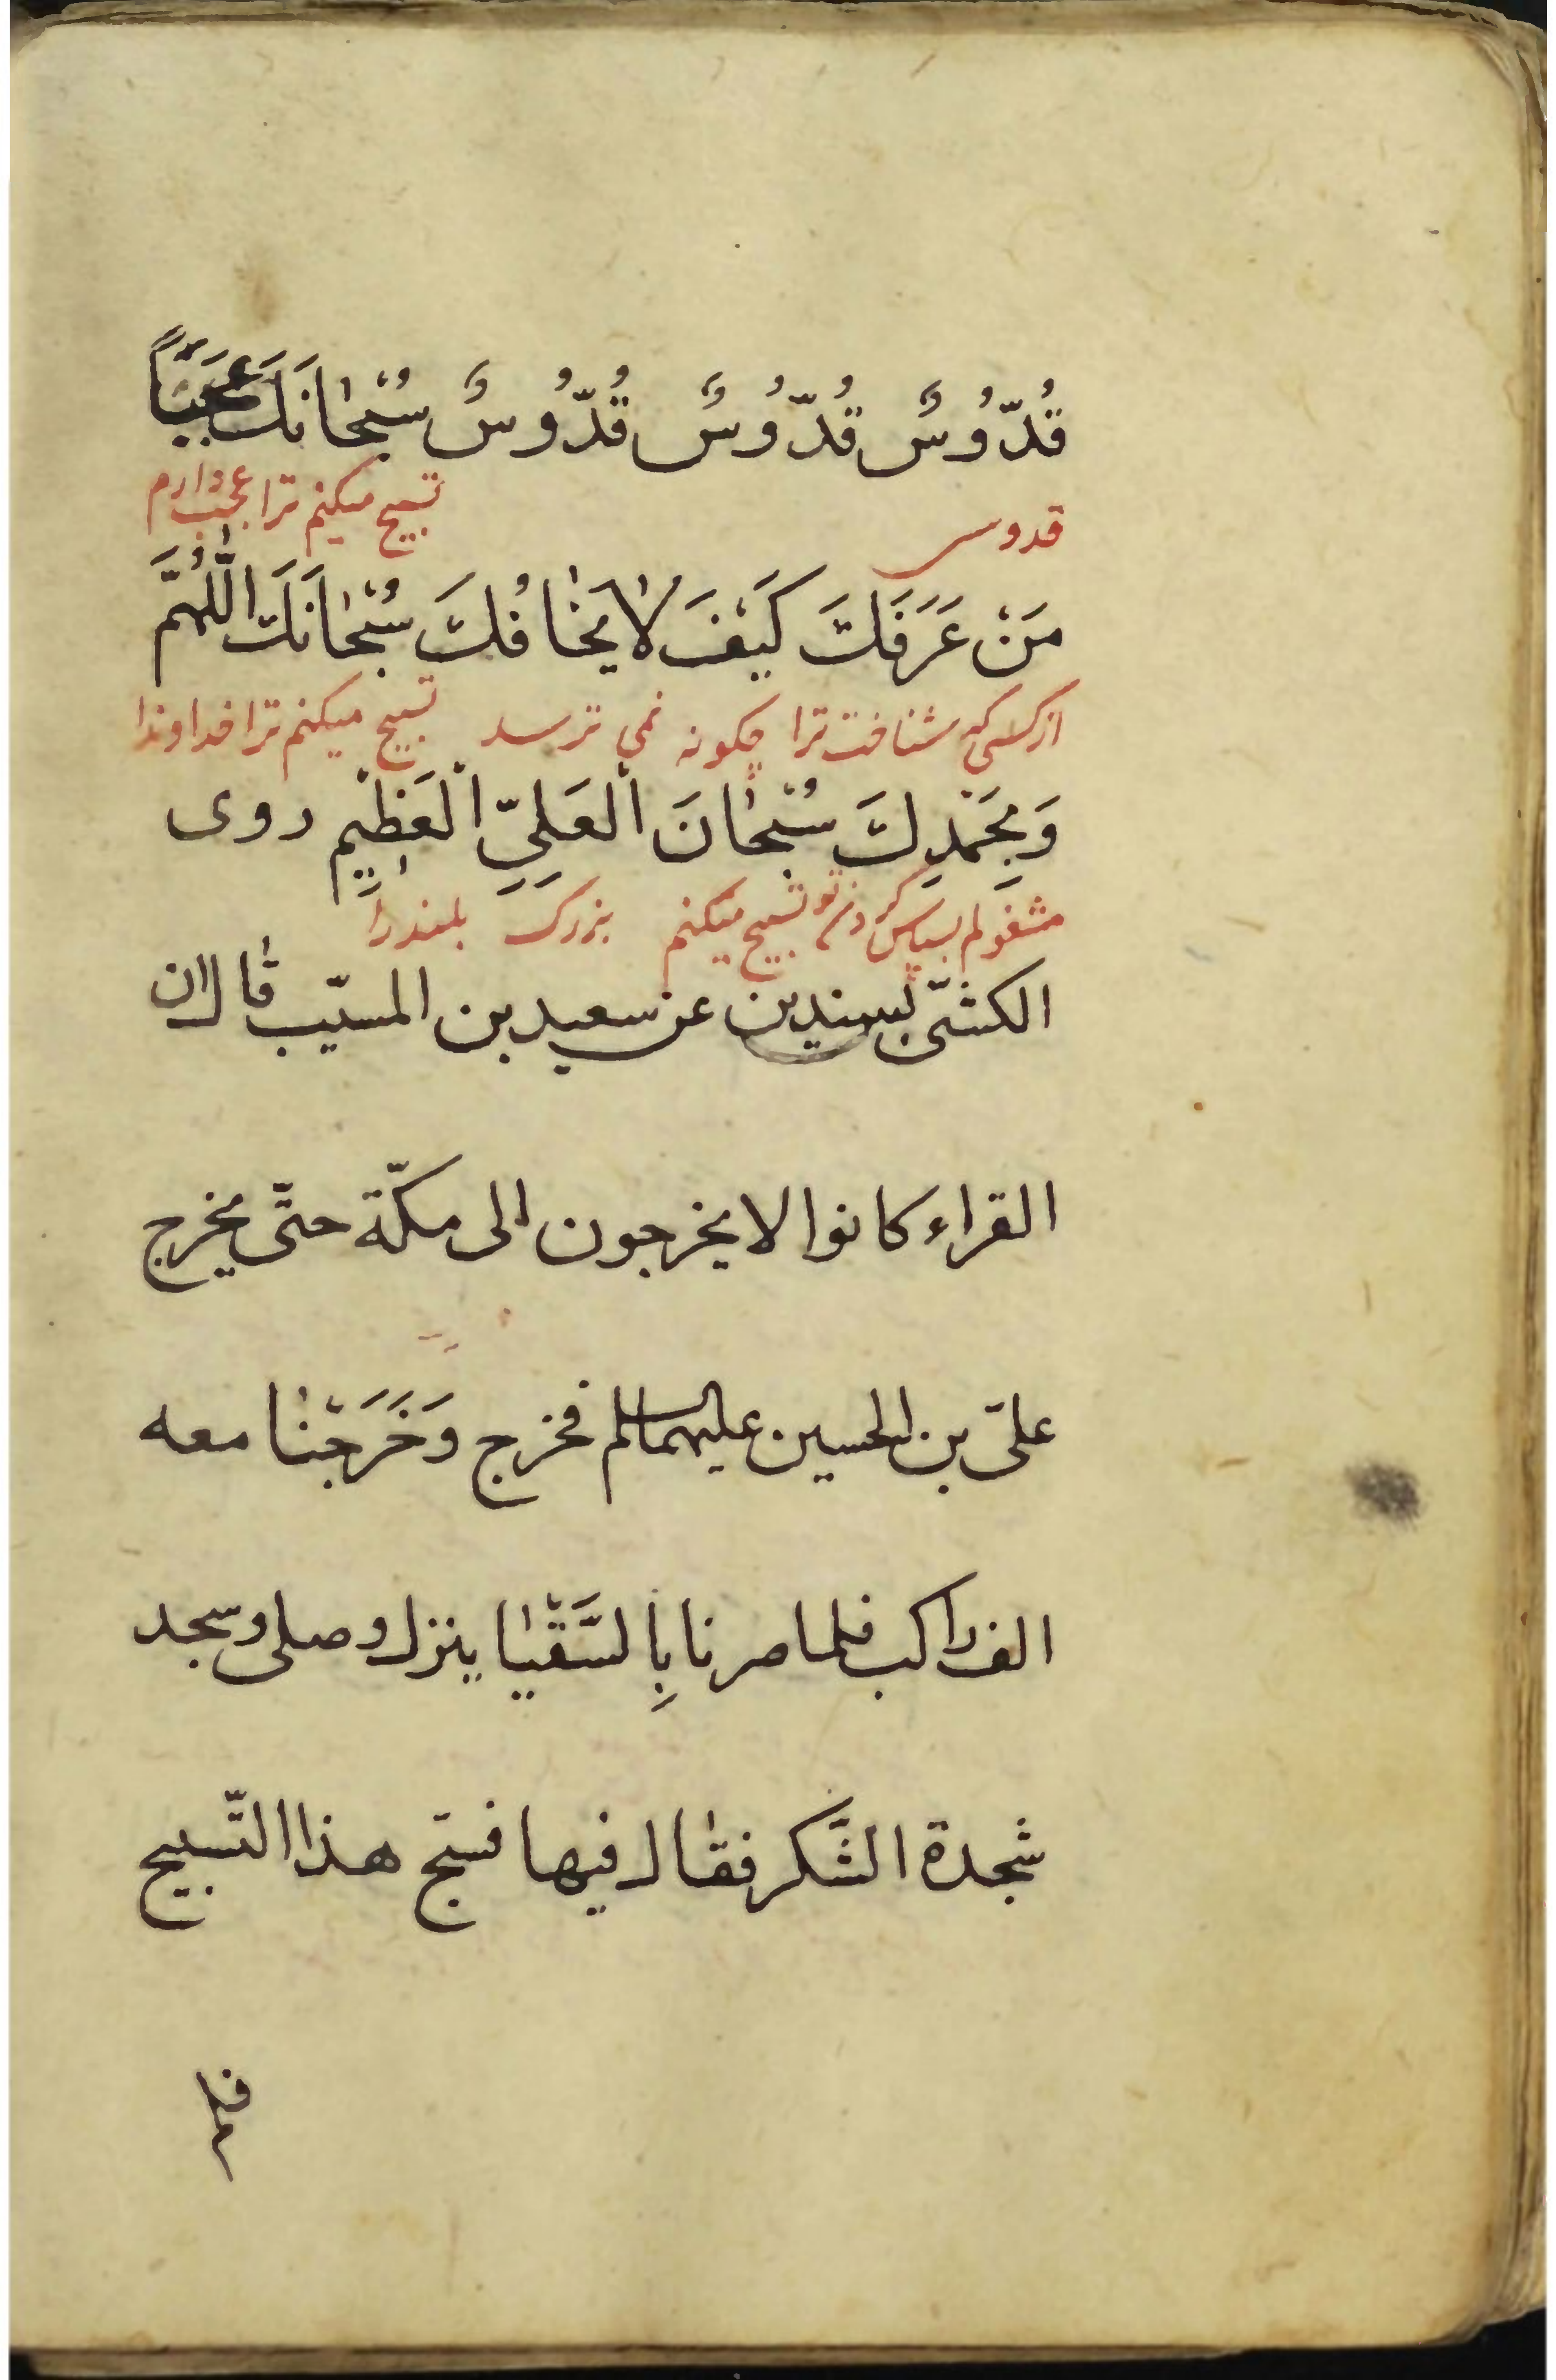 قُدُّوسٌ قُدُّوسٌ قُدُّوسٌ سُبْحٰانَكَ عَجَبًا
قدوس تسبیح میکنم ترا عجب دارم
مَنْ عَرَفَكَ كَيْفَ لٰا يَخٰافُكَ سُبْحٰانَكَ اللّٰهُمَّ
از کسی که شناخت ترا چکونه نمی ترسد تسبیح میکنم ترا خداوندا
وَبِحَمْدِكَ سُبْحٰانَ الْعَلِيِّ الْعَظِيْمِ روى
مشغولم بسپاس کردن تو تسبیح میکنم بزرک بلند را
الكشىّ بسندين عن سعيد بن المسيّب قال ان
القراء كانوا لا يخرجون الى مكّة حتّى يخرج
علىّ بن الحسين عليهما السلم فخرج وَخَرَجْنٰا معه
الف راكب فلما صرنا بِالسَّقْيٰا ينزل وصلى وسجد
سجدة الشكر فقٰال فيها فسبّح هذا التّسبيح
فلم